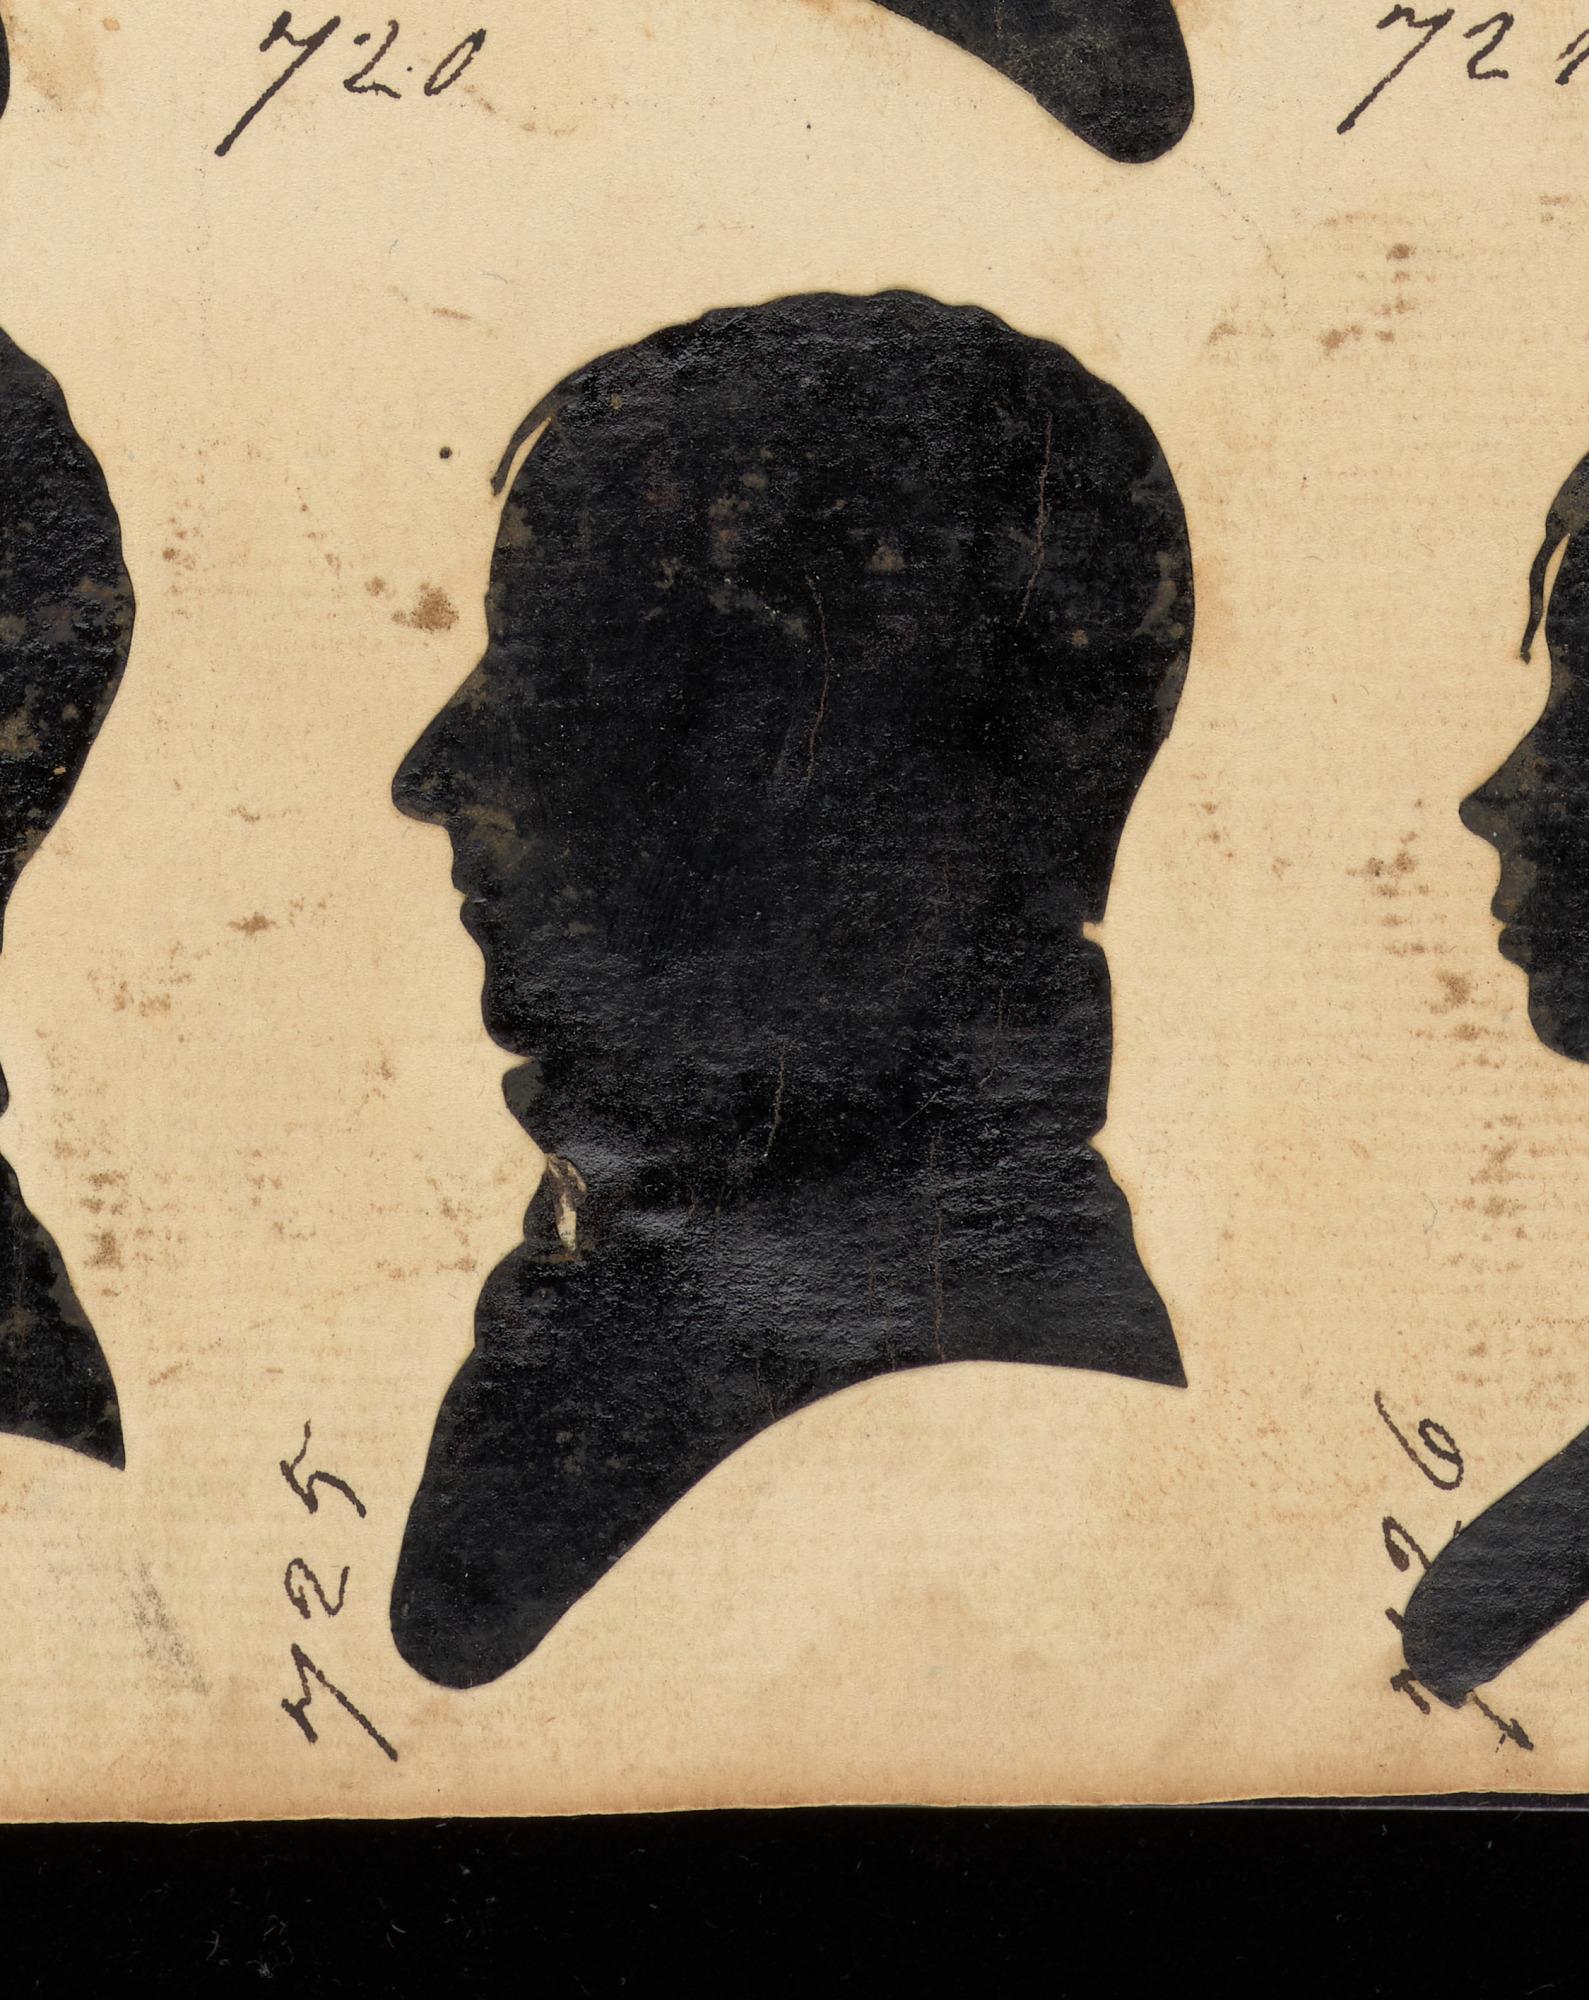 720
721
725
726